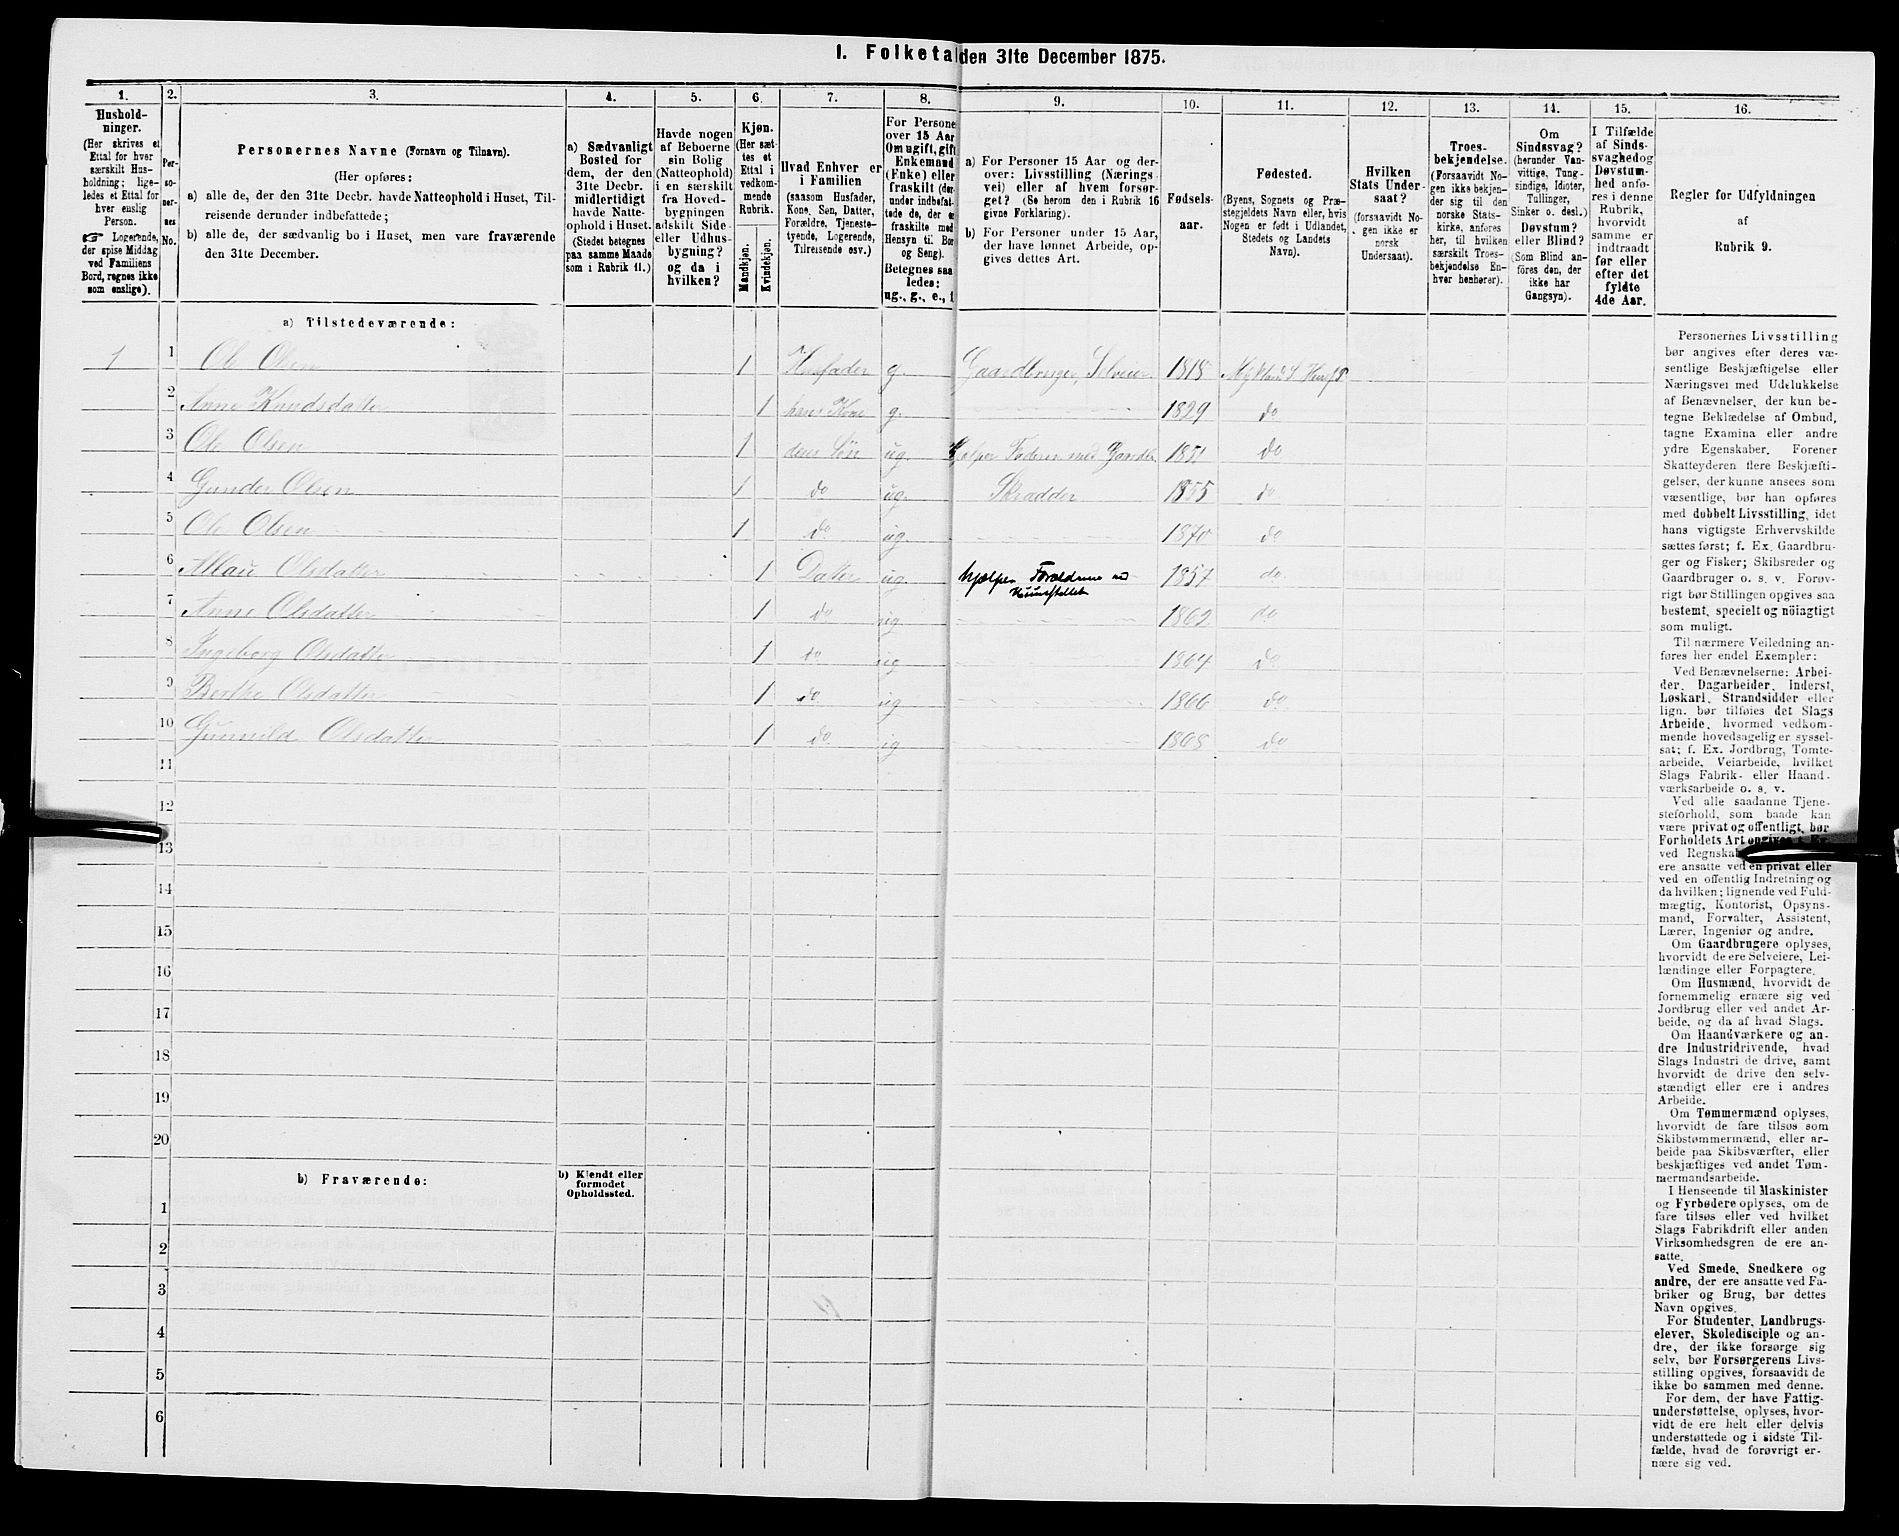 I. Folketa den 31te December 1875.
1.
Hushold-
ninger.
(Her skrives et
Ettal for hver
særskilt Hus-
holdning; lige-
ledes et Ettal for
hver enslig
Person.
☞ Logerende,
der spise Middag
ved Familiens
Bord, regnes ikke
som enslige).
2.
Per-
so-
ner-
nes
No.
3.
Personernes Navne (Fornavn og Tilnavn).
(Her opføres:
a) alle de, der den 31te Decbr. havde Natteophold i Huset, Til-
reisende derunder indbefattede;
b) alle de, der sædvanlig bo i Huset, men vare fraværende
den 31te December.
4.
a) Sædvanligt
Bosted for
dem, der den
31te Decbr.
midlertidigt
havde Natte-
ophold i Huset.
(Stedet betegnes
paa samme Maade
som i Rubrik 11.)
5.
Havde nogen
af Beboerne
sin Bolig
(Natteophold)
i en særskilt
fra Hoved-
bygningen
adskilt Side-
eller Udhus-
bygning?
og da i
hvilken?
6.
Kjøn.
(Her sæt-
tes et
Ettal i
vedkom-
mende
Rubrik.
Mandkjøn.
Kvindekjøn.
7.
Hvad Enhver er
i Familien
(saasom Husfader,
Kone, Søn, Datter,
Forældre, Tjeneste-
tyende, Logerende,
Tilreisende osv.)
8.
For Persone
over 15 Aar
Om ugift, gift
Enkemand
(Enke) eller
fraskilt (der-
under indbefat-
tede de, der e
fraskilte med
Hensyn til Bor
og Seng).
Betegnes saa
ledes:
ug., g., e., f
9.
a) For Personer 15 Aar og der-
over: Livsstilling (Nærings-
vei) eller af hvem forsør-
get? (Se herom den i Rubrik 16
givne Forklaring).
b) For Personer under 15 Aar,
der have lønnet Arbeide, op-
gives dettes Art.
10.
Fødsels-
aar.
11.
Fødested.
(Byens, Sognets og Præ-
stegjeldets Navn eller, hvis
Nogen er født i Udlandet,
Stedets og Landets
Navn).
12.
Hvilken
Stats Under-
saat?
(forsaavidt No-
gen ikke er
norsk
Undersaat).
13.
Troes-
bekjendelse.
(Forsaavidt No-
gen ikke bekjen-
der sig til den
norske Stats-
kirke, anføres
her, til hvilken
særskilt Troes-
bekjendelse En-
hver henhører).
14.
Om
Sindssvag?
(herunder Van-
vittige, Tung-
sindige, Idioter,
Tullinger,
Sinker o. desl.)
Døvstum?
eller Blind?
(Som Blind an-
føres den, der
ikke har
Gangsyn).
15.
I Tilfælde
af Sinds-
svaghed og
Døvstum-
hed anfø-
res i denne
Rubrik,
hvorvidt
samme er
indtraadt
før eller
efter det
fyldte
4de Aar.
16.
Regler for Udfyldningen
af
Rubrik 9.
a) Tilstedeværende:
1 1 Ole Olsen 1 Husfader g. Gaardbruger, Selveier 1818 Mykland S
2 Anne Knudsdatter 1 hans Kone g. 1829 do
3 Ole Olsen 1 deres Søn ug. Hjælper Faderen med Gaardbr 1851 do
4 Gunder Olsen 1 do ug. Skrædder 1855 do
5 Ole Olsen 1 do ug. 1870 do
6 Olsdatter 1 Datter ug hjælper Forældrene ved 1857 do
Huusstellet
7 Anne Olsdatter 1 do ug 1862 do
8 Ingeborg Olsdatter 1 do ug 1864 do
9 Berthe Olsdatter 1 do ug 1866 do
10 Gunnild Olsdatter 1 do ug 1868 do
11
12
13
14
15
16
17
18
19
20
b) Fraværende:
b) Kjendt eller
formodet
Opholdssted.
1
2
3
4
5
6
Personernes Livsstilling
bør angives efter deres væ-
sentlige Beskjæftigelse eller
Næringsvei med Udelukkelse
af Benævnelser, der kun be-
tegne Beklædelse af Ombud,
tagne Examina eller andre
ydre Egenskaber. Forener
Skatteyderen flere Beskjæfti-
gelser, der kunne ansees som
væsentlige, bør han opføres
med dobbelt Livsstilling, idet
hans vigtigste Erhvervskilde
sættes først; f. Ex. Gaardbru-
ger og Fisker; Skibsreder og
Gaardbruger o. s. v. Forøv-
rigt bør Stillingen opgives saa
bestemt, specielt og nöiagtigt
som muligt.
Til nærmere Veiledning an-
føres her endel Exempler:
Ved Benævnelserne: Arbei-
der, Dagarbeider, Inderst,
Løskarl, Strandsidder eller
lign. bør tilføies det Slags
Arbeide, hvormed vedkom-
mende hovedsagelig er syssel-
sat; f. Ex. Jordbrug, Tomte-
arbeide, Veiarbeide, hvilket
Slags Fabrik- eller Haand-
værksarbeide o. s. v.
Ved alle saadanne Tjene-
steforhold, som baade kan
være privat og offentligt, bør
Forholdets Art
ved Regnska
ere ansatte ved en privat eller
ved en offentlig Indretning og
da hvilken; lignende ved Fuld-
mægtig, Kontorist, Opsyns-
mand, Forvalter, Assistent,
Lærer, Ingeniør og andre.
Om Gaardbrugere oplyses,
hvorvidt de ere Selveiere, Lei-
lændinge eller Forpagtere.
Om Husmænd, hvorvidt de
fornemmelig ernære sig ved
Jordbrug eller ved andet Ar-
beide, og da af hvad Slags.
Om Haandværkere og an-
dre Industridrivende, hvad
Slags Industri de drive, samt
hvorvidt de drive den selv-
stændigt eller ere i andres
Arbeide.
Om Tømmermænd oplyses,
hvorvidt de fare tilsøs som
Skibstømmermænd, eller ar-
beide paa Skibsværfter, eller
beskjæftiges ved andet Tøm-
mermandsarbeide.
I Henseende til Maskinister
og Fyrbødere oplyses, om de
fare tilsøs eller ved hvilket
Slags Fabrikdrift eller anden
Virksomhedsgren de ere an-
satte.
Ved Smede, Snedkere og
andre, der ere ansatte ved Fa-
briker og Brug, bør dettes
Navn opgives.
For Studenter, Landbrugs-
elever, Skoledisciple og an-
dre, der ikke forsørge sig
selv, bør Forsørgerens Livs-
stilling opgives, forsaavidt de
ikke bo sammen med denne.
For dem, der have Fattig-
understøttelse, oplyses, hvor-
vidt de ere helt eller delvis
understøttede og i sidste Til-
fælde, hvad de forøvrigt er-
nære sig ved.